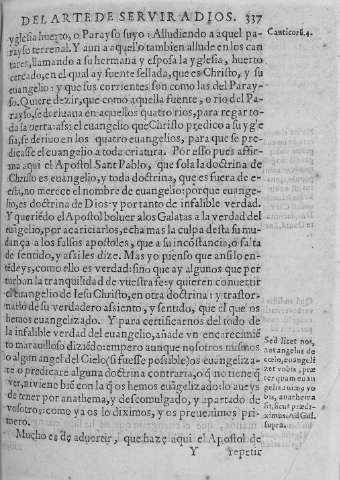 DEL ARTE DE SERVIR A DIOS. 337
yglesia huerto, o Parayso suyo: Alludiendo a aquel pa-
rayso terrenal. Y aun a aquello tambien allude en los can
tares, llamando a su hermana y esposa la yglesia, huerto
cercado, en el qual ay fuente sellada, que es Christo, y su
euangelio: y que sus corrientes son como las del Paray-
so. Quiere dezir, que como aquella fuente, o rio del Pa-
rayso, se deriuaua en aquellos quatro rios, para regar to-
da la tierra: assi el euangelio que Christo predico a su ygle
sia, se deriuo en los quatro euangelios, para que se pre-
dicasse el euangelio a toda criatura. Por esso pues affir-
ma aqui el Apostol Sant Pablo, que sola la doctrina de
Christo es euangelio, y toda doctrina, que es fuera de
esta, no merece el nombre de euangelio: porque euange-
lio, es doctrina de Dios: y por tanto de infalible verdad.
Y queriẽdo el Apostol boluer a los Galatas a la verdad del
euãgelio, por acariciarlos, echa mas la culpa desta su mu-
dança a los falsos apostoles, que a su incõstãcia, o falta
de sentido, y assi les dize. Mas yo pienso que ansi lo en-
tẽdeys, como ello es verdad: sino que ay algunos que per
turban la tranquilidad de vuestra fe: y quieren conuertir
el euangelio de Iesu Christo, en otra doctrina: y trastor-
narlo de su verdadero assiento, y sentido, que el que os
hemos euangelizado. Y para certificarnos del todo de
la infalible verdad del euangelio, añade vn encarecimiẽ
to marauilloso diziẽdo: empero aunque nosotros mismos
o algun angel del Cielo (si fuesse possible) os euangeliza-
re o predicare alguna doctrina contraria, o q̃ no tiene q̃
ver, ni viene biẽ con la q̃ os hemos euãgelizado: lo aueys
de tener por anathema, y descomulgado, y apartado de
vosotros: como ya os lo diximos, y os preuenimos pri-
mero.
Mucho es de aduertir, que haze aqui el Apostol de
Y repetir
Canticor. 4.
Sed licet nos,
aut angelus de
cœlo, euangeli
zet vobis, præ
ter quam euan
gelizauim⁹ vo
bis, anathema
sit, sicut prædi-
ximus. Ad Gal.
supra.